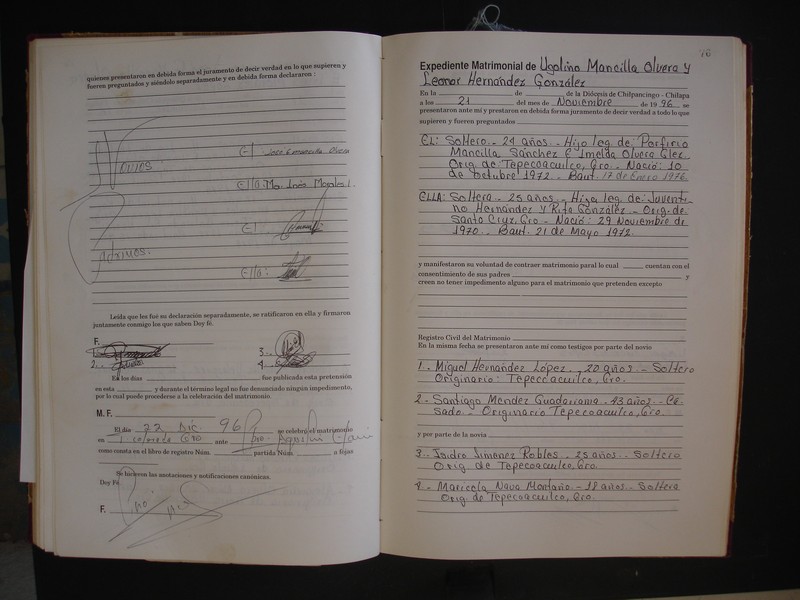 quienes presentaron en debida forma el juramento de decir verdad en lo que supieren y
fueren preguntados y siéndolo separadamente y en debida forma declararon :
Novios
El
Olvera
Ella: Ma. Inés Morales
El
Padrinos.
Ella:
Leída que les fue su declaración separadamente, se ratificaron en ella y firmaron
juntamente conmigo los que saben Doy fé.
F.
1.-
3.-
2.-
4.-
En los días fue publicada esta pretensión
en esta y durante el término legal no fue denunciado ningún impedimento,
por lo cual puede procederse a la celebración del matrimonio.
M. F.
El día 22 Dic. 96 se celebró el matrimonio
en Gro ante Pbro Agustín
como consta en el libro de registro Núm. partida Núm. a fojas
Se hicieron las anotaciones y notificaciones canónicas.
Doy Fé
F.
76
Expediente Matrimonial de Ugolino Mancilla Olvera y
Leonor Hernández González
En la de de la Diócesis de Chilpancingo - Chilapa
a los 21 del mes de Noviembre de 19 96 se
presentaron ante mí y prestaron en debida forma juramento de decir verdad a todo lo que
supieren y fueren preguntados
EL: Soltero.- 24 años.- Hijo leg. de: Porfirio
Mancilla Sánchez E Imelda Olvera Glez.
Orig. de Tepecoacuilco, Gro.- Nació: 10
de Octubre 1972.- Baut. 17 de Enero 1976.
ELLA: Soltera.- 25 años.- Hija leg. de: Juventi-
no Hernández y Rita González.- Orig. de
Santa Cruz, Gro.- Nació: 29 Noviembre de
1970.- Baut. 21 de Mayo 1972.
y manifestaron su voluntad de contraer matrimonio para lo cual cuentan con el
consentimiento de sus padres y
creen no tener impedimento alguno para el matrimonio que pretenden excepto
Registro Civil del Matrimonio
En la misma fecha se presentaron ante mí como testigos por parte del novio
1.- Miguel Hernández López.- 20 años - Soltero
Originario: Tepecoacuilco, Gro.
2.- Santiago Mendez Guadarrama - 43 años.- Ca-
sado.- Originario Tepecoacuilco, Gro.
y por parte de la novia
3.- Isidro Jimenez Robles.- 25 años.- Soltero
Orig. de Tepecoacuilco, Gro.
4.- Maricela Nava Montaño.- 18 años.- Soltera
Orig. de Tepecoacuilco, Gro.